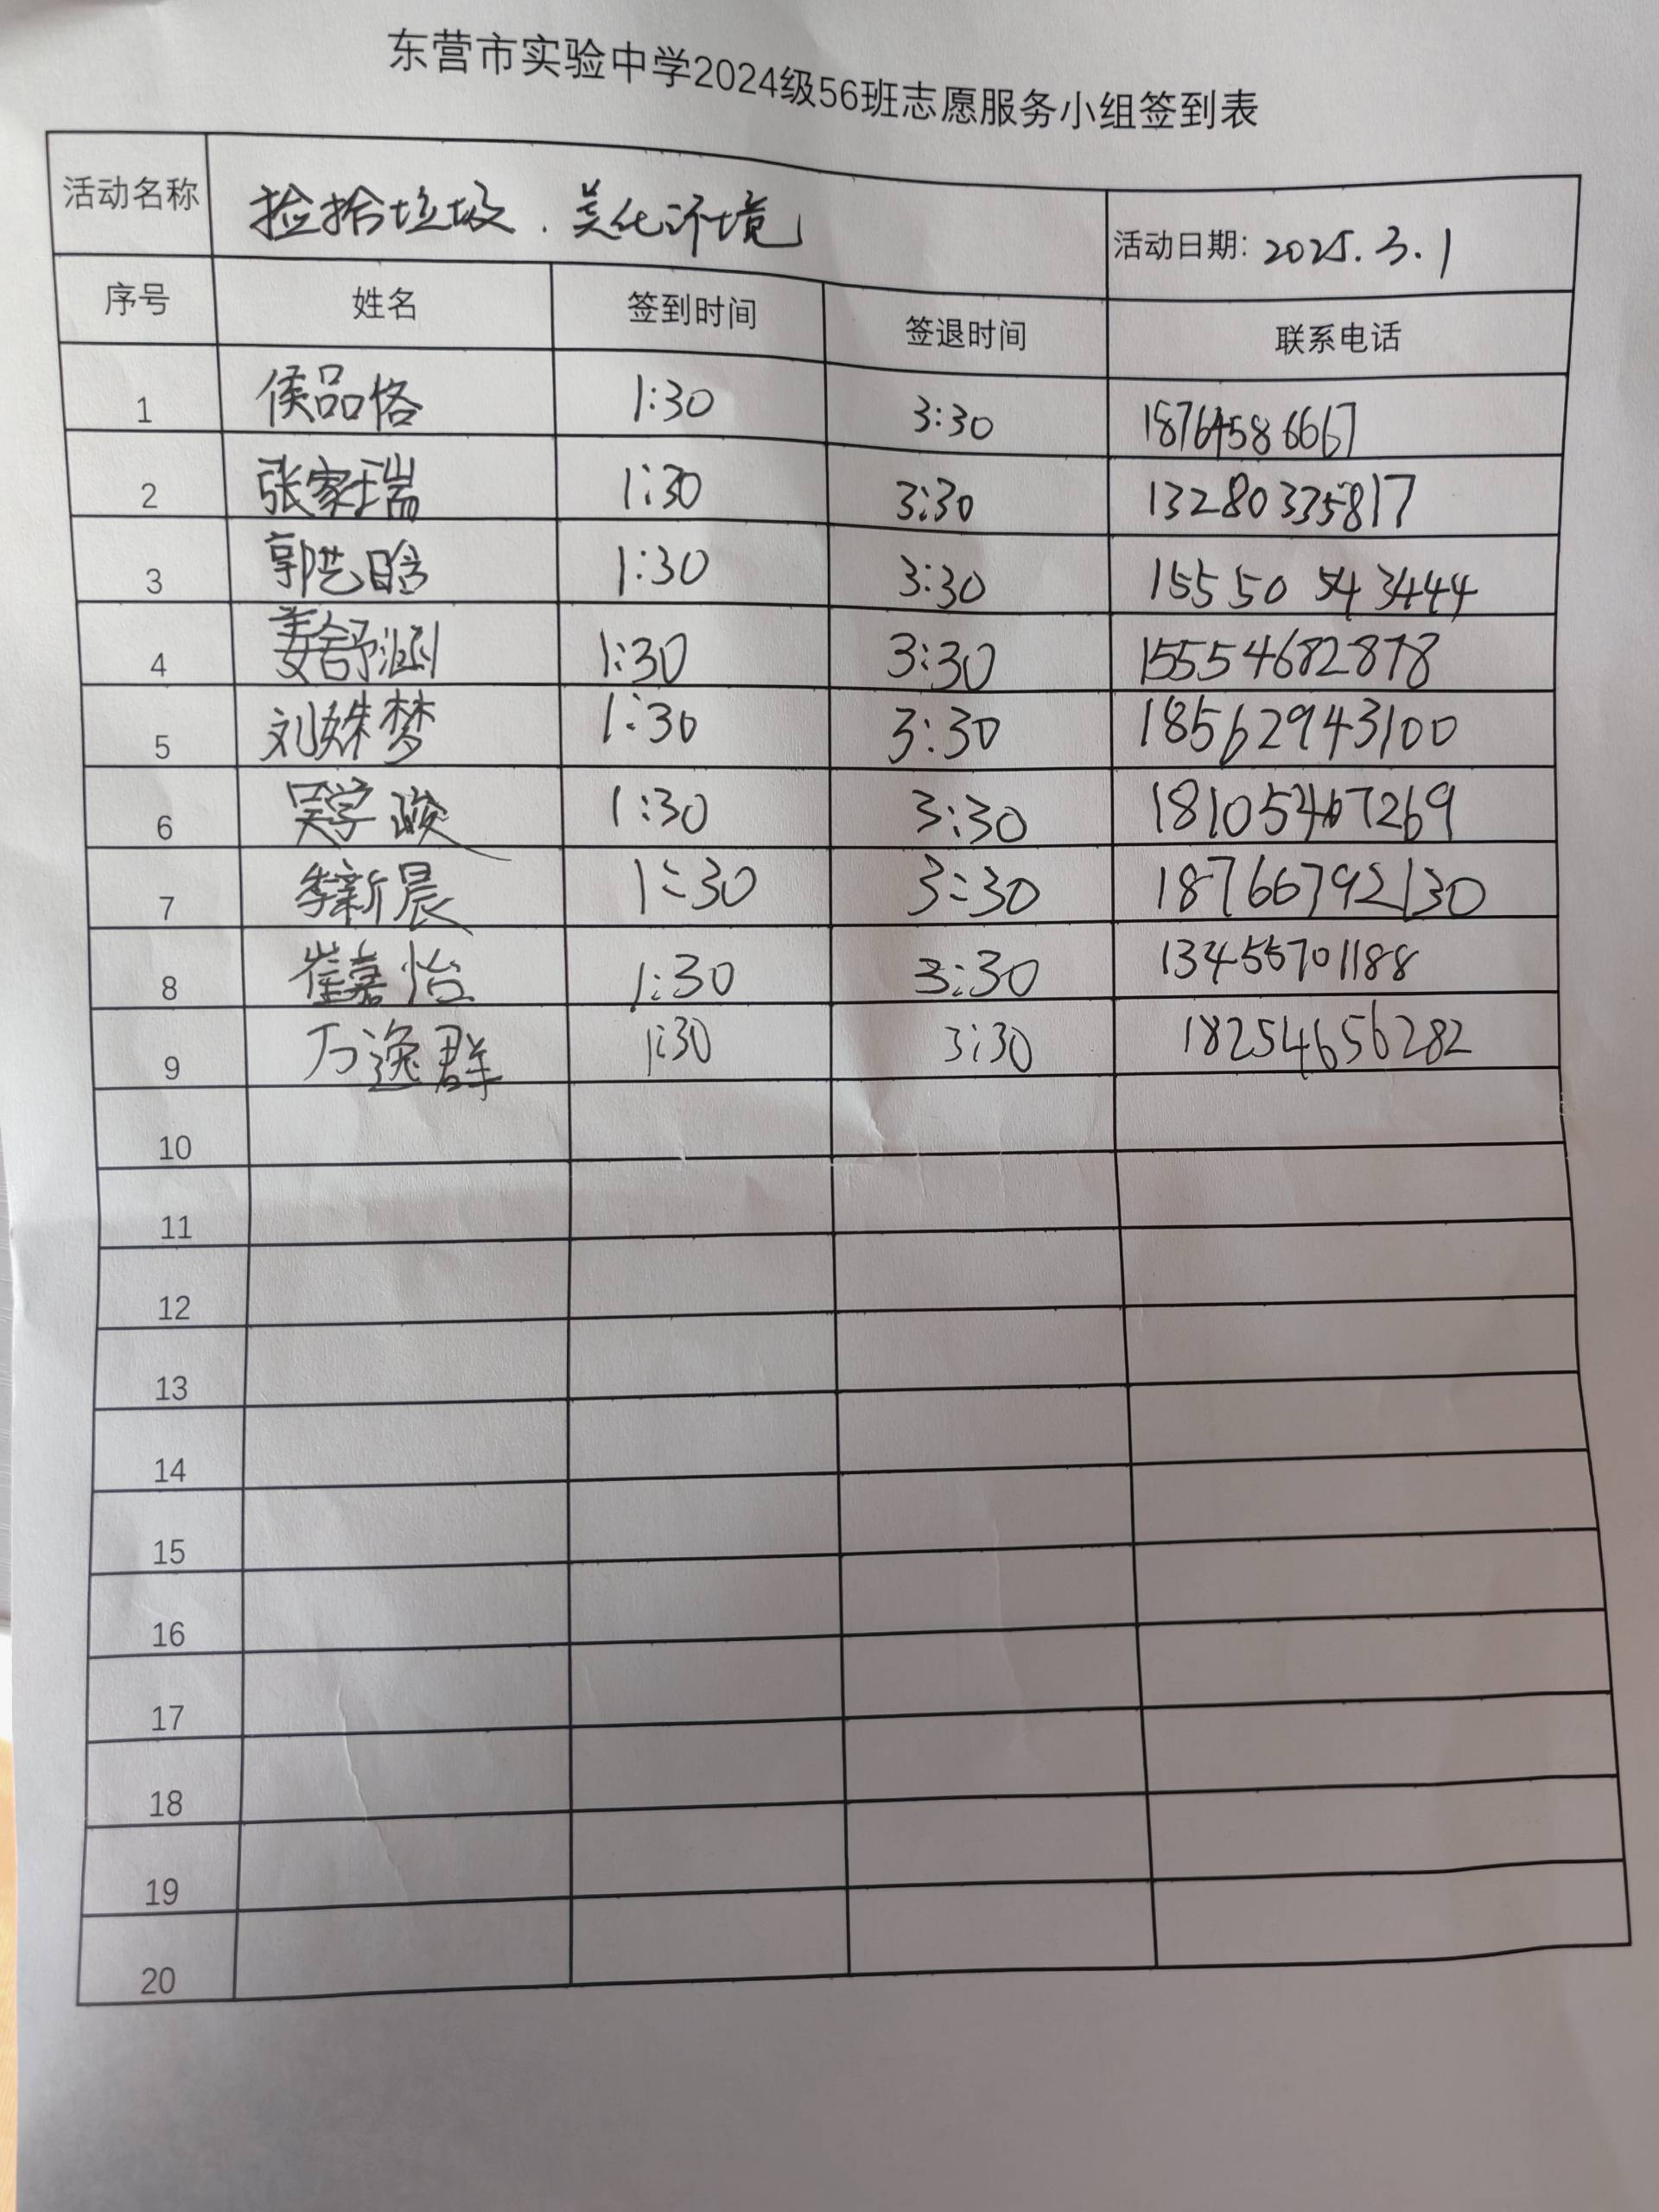 东营市实验中学2024级56班志愿服务小组签到表
活动名称 捡拾垃圾.美化环境 活动日期: 2025.3.1
序号 姓名 签到时间 签退时间 联系电话
1 侯品恪 1:30 3:30 18764586667
2 张家瑞 1:30 3:30 13280335817
3 郭艺晗 1:30 3:30 15550543444
4 姜舒涵 1:30 3:30 15554682878
5 刘姝梦 1:30 3:30 18562943100
6 吴学 1:30 3:30 18105467269
7 李新晨 1:30 3:30 18766792130
8 崔嘉怡 1:30 3:30 13455701188
9 万逸群 1:30 3:30 18254656282
10
11
12
13
14
15
16
17
18
19
20